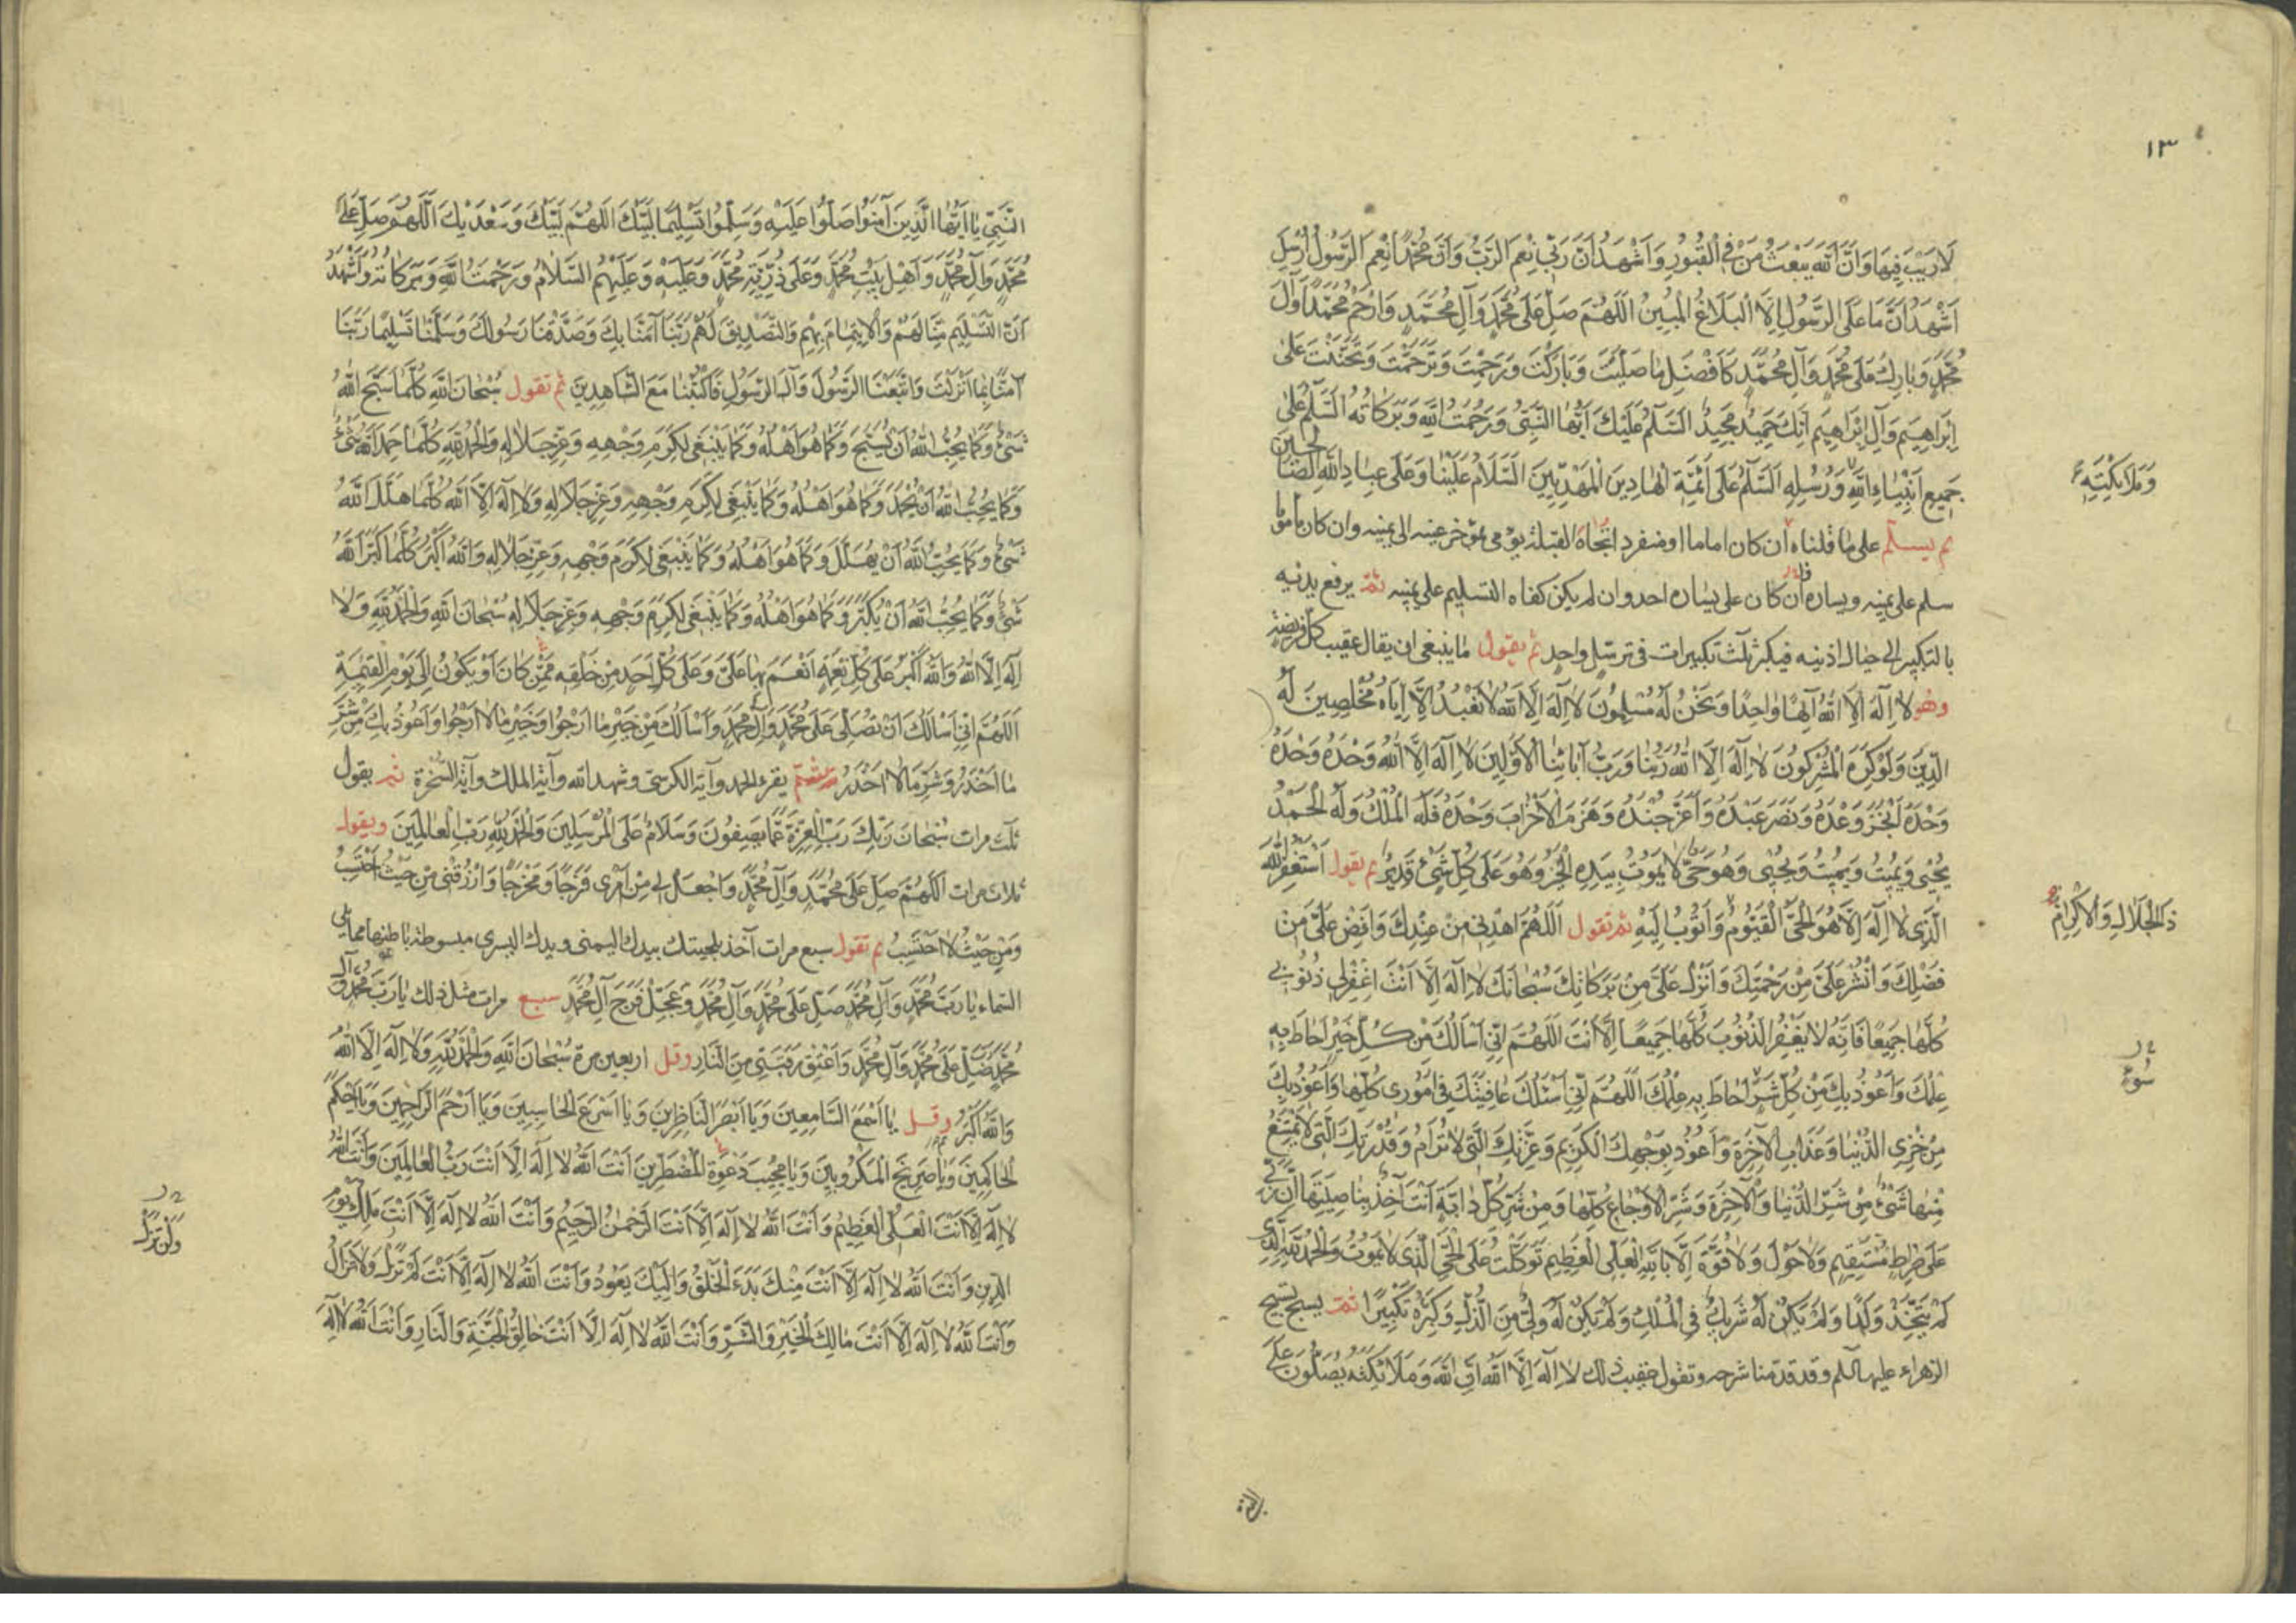 ١٣
لَا رَيْبَ فِيهَا وَاَنَّ اللّٰهَ يَبْعَثُ مَنْ فِي الْقُبُورِ وَاَشْهَدُ اَنَّ رَبِّي نِعْمَ الرَّبُّ وَاَنَّ مُحَمَّدًا نِعْمَ الرَّسُولُ اُرْسِلَ
اَشْهَدُ اَنَّ مَا عَلَى الرَّسُولِ اِلَّا الْبَلَاغُ الْمُبِينُ اَللّٰهُمَّ صَلِّ عَلٰى مُحَمَّدٍ وَآلِ مُحَمَّدٍ وَارْحَمْ مُحَمَّدًا وَآلَ
مُحَمَّدٍ وَبَارِكْ عَلٰى مُحَمَّدٍ وَآلِ مُحَمَّدٍ كَاَفْضَلِ مَا صَلَّيْتَ وَبَارَكْتَ وَرَحِمْتَ وَتَرَحَّمْتَ وَتَحَنَّنْتَ عَلٰى
اِبْرَاهِيمَ وَآلِ اِبْرَاهِيمَ اِنَّكَ حَمِيدٌ مَجِيدٌ اَلسَّلٰمُ عَلَيْكَ اَيُّهَا النَّبِيُّ وَرَحْمَتُ اللّٰهِ وَبَرَكَاتُهُ اَلسَّلٰمُ عَلٰى
جَمِيعِ اَنْبِيَاءِ اللّٰهِ وَرُسُلِهِ اَلسَّلٰمُ عَلَى اَئِمَّةِ الْهَادِينَ الْمَهْدِيِّينَ اَلسَّلَامُ عَلَيْنَا وَعَلَى عِبَادِ اللّٰهِ الصَّالِحِينَ
وَمَلَائِكَتِهِ
ثم يسلم على ما قلناه ان كان اماما او منفردا تجاه القبلة يومى بمؤخر عينه الى يمينه وان كان مأموما
سلم على يمينه ويساره ان كان على يساره احد وان لم يكن كفاه التسليم على يمينه ثم يرفع يديه
بالتكبير الى حيال اذنيه فيكبر ثلث تكبيرات في ترسل واحد ثم يقول ما ينبغي ان يقال عقيب كل فريضة
وهو لَا اِلٰهَ اِلَّا اللّٰهُ اِلٰهًا وَاحِدًا وَنَحْنُ لَهُ مُسْلِمُونَ لَا اِلٰهَ اِلَّا اللّٰهُ لَا نَعْبُدُ اِلَّا اِيَّاهُ مُخْلِصِينَ لَهُ
الدِّينَ وَلَوْ كَرِهَ الْمُشْرِكُونَ لَا اِلٰهَ اِلَّا اللّٰهُ رَبُّنَا وَرَبُّ آبَائِنَا الْاَوَّلِينَ لَا اِلٰهَ اِلَّا اللّٰهُ وَحْدَهُ وَحْدَهُ
وَحْدَهُ اَنْجَزَ وَعْدَهُ وَنَصَرَ عَبْدَهُ وَاَعَزَّ جُنْدَهُ وَهَزَمَ الْاَحْزَابَ وَحْدَهُ فَلَهُ الْمُلْكُ وَلَهُ الْحَمْدُ
يُحْيِي وَيُمِيتُ وَيُمِيتُ وَيُحْيِي وَهُوَ حَيٌّ لَا يَمُوتُ بِيَدِهِ الْخَيْرُ وَهُوَ عَلَى كُلِّ شَيْءٍ قَدِيرٌ ثم يقول اَسْتَغْفِرُ اللّٰهَ
الَّذِي لَا اِلٰهَ اِلَّا هُوَ الْحَيُّ الْقَيُّومُ وَاَتُوبُ اِلَيْهِ ثم تقول اَللّٰهُمَّ اهْدِنِي مِنْ عِنْدِكَ وَاَفِضْ عَلَيَّ مِنْ
ذَا الْجَلَالِ وَالْاِكْرَامِ
فَضْلِكَ وَانْشُرْ عَلَيَّ مِنْ رَحْمَتِكَ وَاَنْزِلْ عَلَيَّ مِنْ بَرَكَاتِكَ سُبْحَانَكَ لَا اِلٰهَ اِلَّا اَنْتَ اغْفِرْ لِي ذُنُوبِي
كُلَّهَا جَمِيعًا فَاِنَّهُ لَا يَغْفِرُ الذُّنُوبَ كُلَّهَا جَمِيعًا اِلَّا اَنْتَ اَللّٰهُمَّ اِنِّي اَسْاَلُكَ مِنْ كُلِّ خَيْرٍ اَحَاطَ بِهِ
عِلْمُكَ وَاَعُوذُ بِكَ مِنْ كُلِّ شَرٍّ اَحَاطَ بِهِ عِلْمُكَ اَللّٰهُمَّ اِنِّي اَسْئَلُكَ عَافِيَتَكَ فِي اُمُورِي كُلِّهَا وَاَعُوذُ بِكَ
سُوءٍ
مِنْ خِزْيِ الدُّنْيَا وَعَذَابِ الْآخِرَةِ وَاَعُوذُ بِوَجْهِكَ الْكَرِيمِ وَعِزَّتِكَ الَّتِي لَا تُرَامُ وَقُدْرَتِكَ الَّتِي لَا يَمْتَنِعُ
مِنْهَا شَيْءٌ مِنْ شَرِّ الدُّنْيَا وَالْآخِرَةِ وَشَرِّ الْاَوْجَاعِ كُلِّهَا وَمِنْ شَرِّ كُلِّ دَابَّةٍ اَنْتَ آخِذٌ بِنَاصِيَتِهَا اِنَّ رَبِّي
عَلٰى صِرَاطٍ مُسْتَقِيمٍ وَلَا حَوْلَ وَلَا قُوَّةَ اِلَّا بِاللّٰهِ الْعَلِيِّ الْعَظِيمِ تَوَكَّلْتُ عَلَى الْحَيِّ الَّذِي لَا يَمُوتُ وَالْحَمْدُ لِلّٰهِ الَّذِي
لَمْ يَتَّخِذْ وَلَدًا وَلَمْ يَكُنْ لَهُ شَرِيكٌ فِي الْمُلْكِ وَلَمْ يَكُنْ لَهُ وَلِيٌّ مِنَ الذُّلِّ وَكَبِّرْهُ تَكْبِيرًا ثم يسبح تسبيح
الزهراء عليها السلم وقد قدمنا شرحه وتقول عقيب ذلك لَا اِلٰهَ اِلَّا اللّٰهُ اِنَّ اللّٰهَ وَمَلَائِكَتَهُ يُصَلُّونَ عَلَى
النَّبِيِّ يَا اَيُّهَا الَّذِينَ آمَنُوا صَلُّوا عَلَيْهِ وَسَلِّمُوا تَسْلِيمًا لَبَّيْكَ اَللّٰهُمَّ لَبَّيْكَ وَسَعْدَيْكَ اَللّٰهُمَّ صَلِّ عَلَى
مُحَمَّدٍ وَآلِ مُحَمَّدٍ وَاَهْلِ بَيْتِ مُحَمَّدٍ وَعَلَى ذُرِّيَّةِ مُحَمَّدٍ وَعَلَيْهِ وَعَلَيْهِمُ السَّلَامُ وَرَحْمَتُ اللّٰهِ وَبَرَكَاتُهُ وَاَشْهَدُ
اَنَّ التَّسْلِيمَ مِنَّا لَهُمْ وَالْاِيتِمَامَ بِهِمْ وَالتَّصْدِيقَ لَهُمْ رَبَّنَا آمَنَّا بِكَ وَصَدَّقْنَا رَسُولَكَ وَسَلَّمْنَا تَسْلِيمًا رَبَّنَا
آمَنَّا بِمَا اَنْزَلْتَ وَاتَّبَعْنَا الرَّسُولَ وَآلَ الرَّسُولِ فَاكْتُبْنَا مَعَ الشَّاهِدِينَ ثم تقول سُبْحَانَ اللّٰهِ كُلَّمَا سَبَّحَ اللّٰهَ
شَيْءٌ وَكَمَا يُحِبُّ اللّٰهُ اَنْ يُسَبَّحَ وَكَمَا هُوَ اَهْلُهُ وَكَمَا يَنْبَغِي لِكَرَمِ وَجْهِهِ وَعِزِّ جَلَالِهِ وَالْحَمْدُ لِلّٰهِ كُلَّمَا حَمِدَ اللّٰهَ شَيْءٌ
وَكَمَا يُحِبُّ اللّٰهُ اَنْ يُحْمَدَ وَكَمَا هُوَ اَهْلُهُ وَكَمَا يَنْبَغِي لِكَرَمِ وَجْهِهِ وَعِزِّ جَلَالِهِ وَلَا اِلٰهَ اِلَّا اللّٰهُ كُلَّمَا هَلَّلَ اللّٰهَ
شَيْءٌ وَكَمَا يُحِبُّ اللّٰهُ اَنْ يُهَلَّلَ وَكَمَا هُوَ اَهْلُهُ وَكَمَا يَنْبَغِي لِكَرَمِ وَجْهِهِ وَعِزِّ جَلَالِهِ وَاللّٰهُ اَكْبَرُ كُلَّمَا كَبَّرَ اللّٰهَ
شَيْءٌ وَكَمَا يُحِبُّ اللّٰهُ اَنْ يُكَبَّرَ وَكَمَا هُوَ اَهْلُهُ وَكَمَا يَنْبَغِي لِكَرَمِ وَجْهِهِ وَعِزِّ جَلَالِهِ سُبْحَانَ اللّٰهِ وَالْحَمْدُ لِلّٰهِ وَلَا
اِلٰهَ اِلَّا اللّٰهُ وَاللّٰهُ اَكْبَرُ عَلَى كُلِّ نِعْمَةٍ اَنْعَمَ بِهَا عَلَيَّ وَعَلَى كُلِّ اَحَدٍ مِنْ خَلْقِهِ مِمَّنْ كَانَ اَوْ يَكُونُ اِلَى يَوْمِ الْقِيٰمَةِ
اَللّٰهُمَّ اِنِّي اَسْاَلُكَ اَنْ تُصَلِّيَ عَلَى مُحَمَّدٍ وَآلِ مُحَمَّدٍ وَاَسْاَلُكَ مِنْ خَيْرِ مَا اَرْجُوا وَخَيْرِ مَا لَا اَرْجُوا وَاَعُوذُ بِكَ مِنْ شَرِّ
مَا اَحْذَرُ وَشَرِّ مَا لَا اَحْذَرُ ثم يقرء الحمد وآية الكرسي وشهد الله وآية الملك وآية السخرة ثم يقول
ثلث مرات سُبْحَانَ رَبِّكَ رَبِّ الْعِزَّةِ عَمَّا يَصِفُونَ وَسَلَامٌ عَلَى الْمُرْسَلِينَ وَالْحَمْدُ لِلّٰهِ رَبِّ الْعَالَمِينَ ويقول
ثلاث مرات اَللّٰهُمَّ صَلِّ عَلَى مُحَمَّدٍ وَآلِ مُحَمَّدٍ وَاجْعَلْ لِي مِنْ اَمْرِي فَرَجًا وَمَخْرَجًا وَارْزُقْنِي مِنْ حَيْثُ اَحْتَسِبُ
وَمِنْ حَيْثُ لَا اَحْتَسِبُ ثم تقول سبع مرات آخذ بلحيتك بيدك اليمنى ويدك اليسرى مبسوطة باطنها مما يلي
السماء يَا رَبَّ مُحَمَّدٍ وَآلِ مُحَمَّدٍ صَلِّ عَلَى مُحَمَّدٍ وَآلِ مُحَمَّدٍ وَعَجِّلْ فَرَجَ آلِ مُحَمَّدٍ سبع مرات مثل ذلك يَا رَبَّ مُحَمَّدٍ وَآلِ
مُحَمَّدٍ صَلِّ عَلَى مُحَمَّدٍ وَآلِ مُحَمَّدٍ وَاَعْتِقْ رَقَبَتِي مِنَ النَّارِ وقل اربعين مرة سُبْحَانَ اللّٰهِ وَالْحَمْدُ لِلّٰهِ وَلَا اِلٰهَ اِلَّا اللّٰهُ
وَاللّٰهُ اَكْبَرُ وقل يَا اَسْمَعَ السَّامِعِينَ وَيَا اَبْصَرَ النَّاظِرِينَ وَيَا اَسْرَعَ الْحَاسِبِينَ وَيَا اَرْحَمَ الرَّاحِمِينَ وَيَا اَحْكَمَ
الْحَاكِمِينَ وَيَا صَرِيخَ الْمَكْرُوبِينَ وَيَا مُجِيبَ دَعْوَةِ الْمُضْطَرِّينَ اَنْتَ اللّٰهُ لَا اِلٰهَ اِلَّا اَنْتَ رَبُّ الْعَالَمِينَ وَاَنْتَ اللّٰهُ
لَا اِلٰهَ اِلَّا اَنْتَ الْعَلِيُّ الْعَظِيمُ وَاَنْتَ اللّٰهُ لَا اِلٰهَ اِلَّا اَنْتَ الرَّحْمٰنُ الرَّحِيمُ وَاَنْتَ اللّٰهُ لَا اِلٰهَ اِلَّا اَنْتَ مَلِكُ يَوْمِ
الدِّينِ وَاَنْتَ اللّٰهُ لَا اِلٰهَ اِلَّا اَنْتَ مِنْكَ بَدْءُ الْخَلْقِ وَاِلَيْكَ يَعُودُ وَاَنْتَ اللّٰهُ لَا اِلٰهَ اِلَّا اَنْتَ لَمْ تَزَلْ وَلَا تَزَالُ
وَلَنْ تَزَلْ
وَاَنْتَ اللّٰهُ لَا اِلٰهَ اِلَّا اَنْتَ مَالِكَ الْخَيْرِ وَالشَّرِّ وَاَنْتَ اللّٰهُ لَا اِلٰهَ اِلَّا اَنْتَ خَالِقُ الْجَنَّةِ وَالنَّارِ وَاَنْتَ اللّٰهُ لَا اِلٰهَ